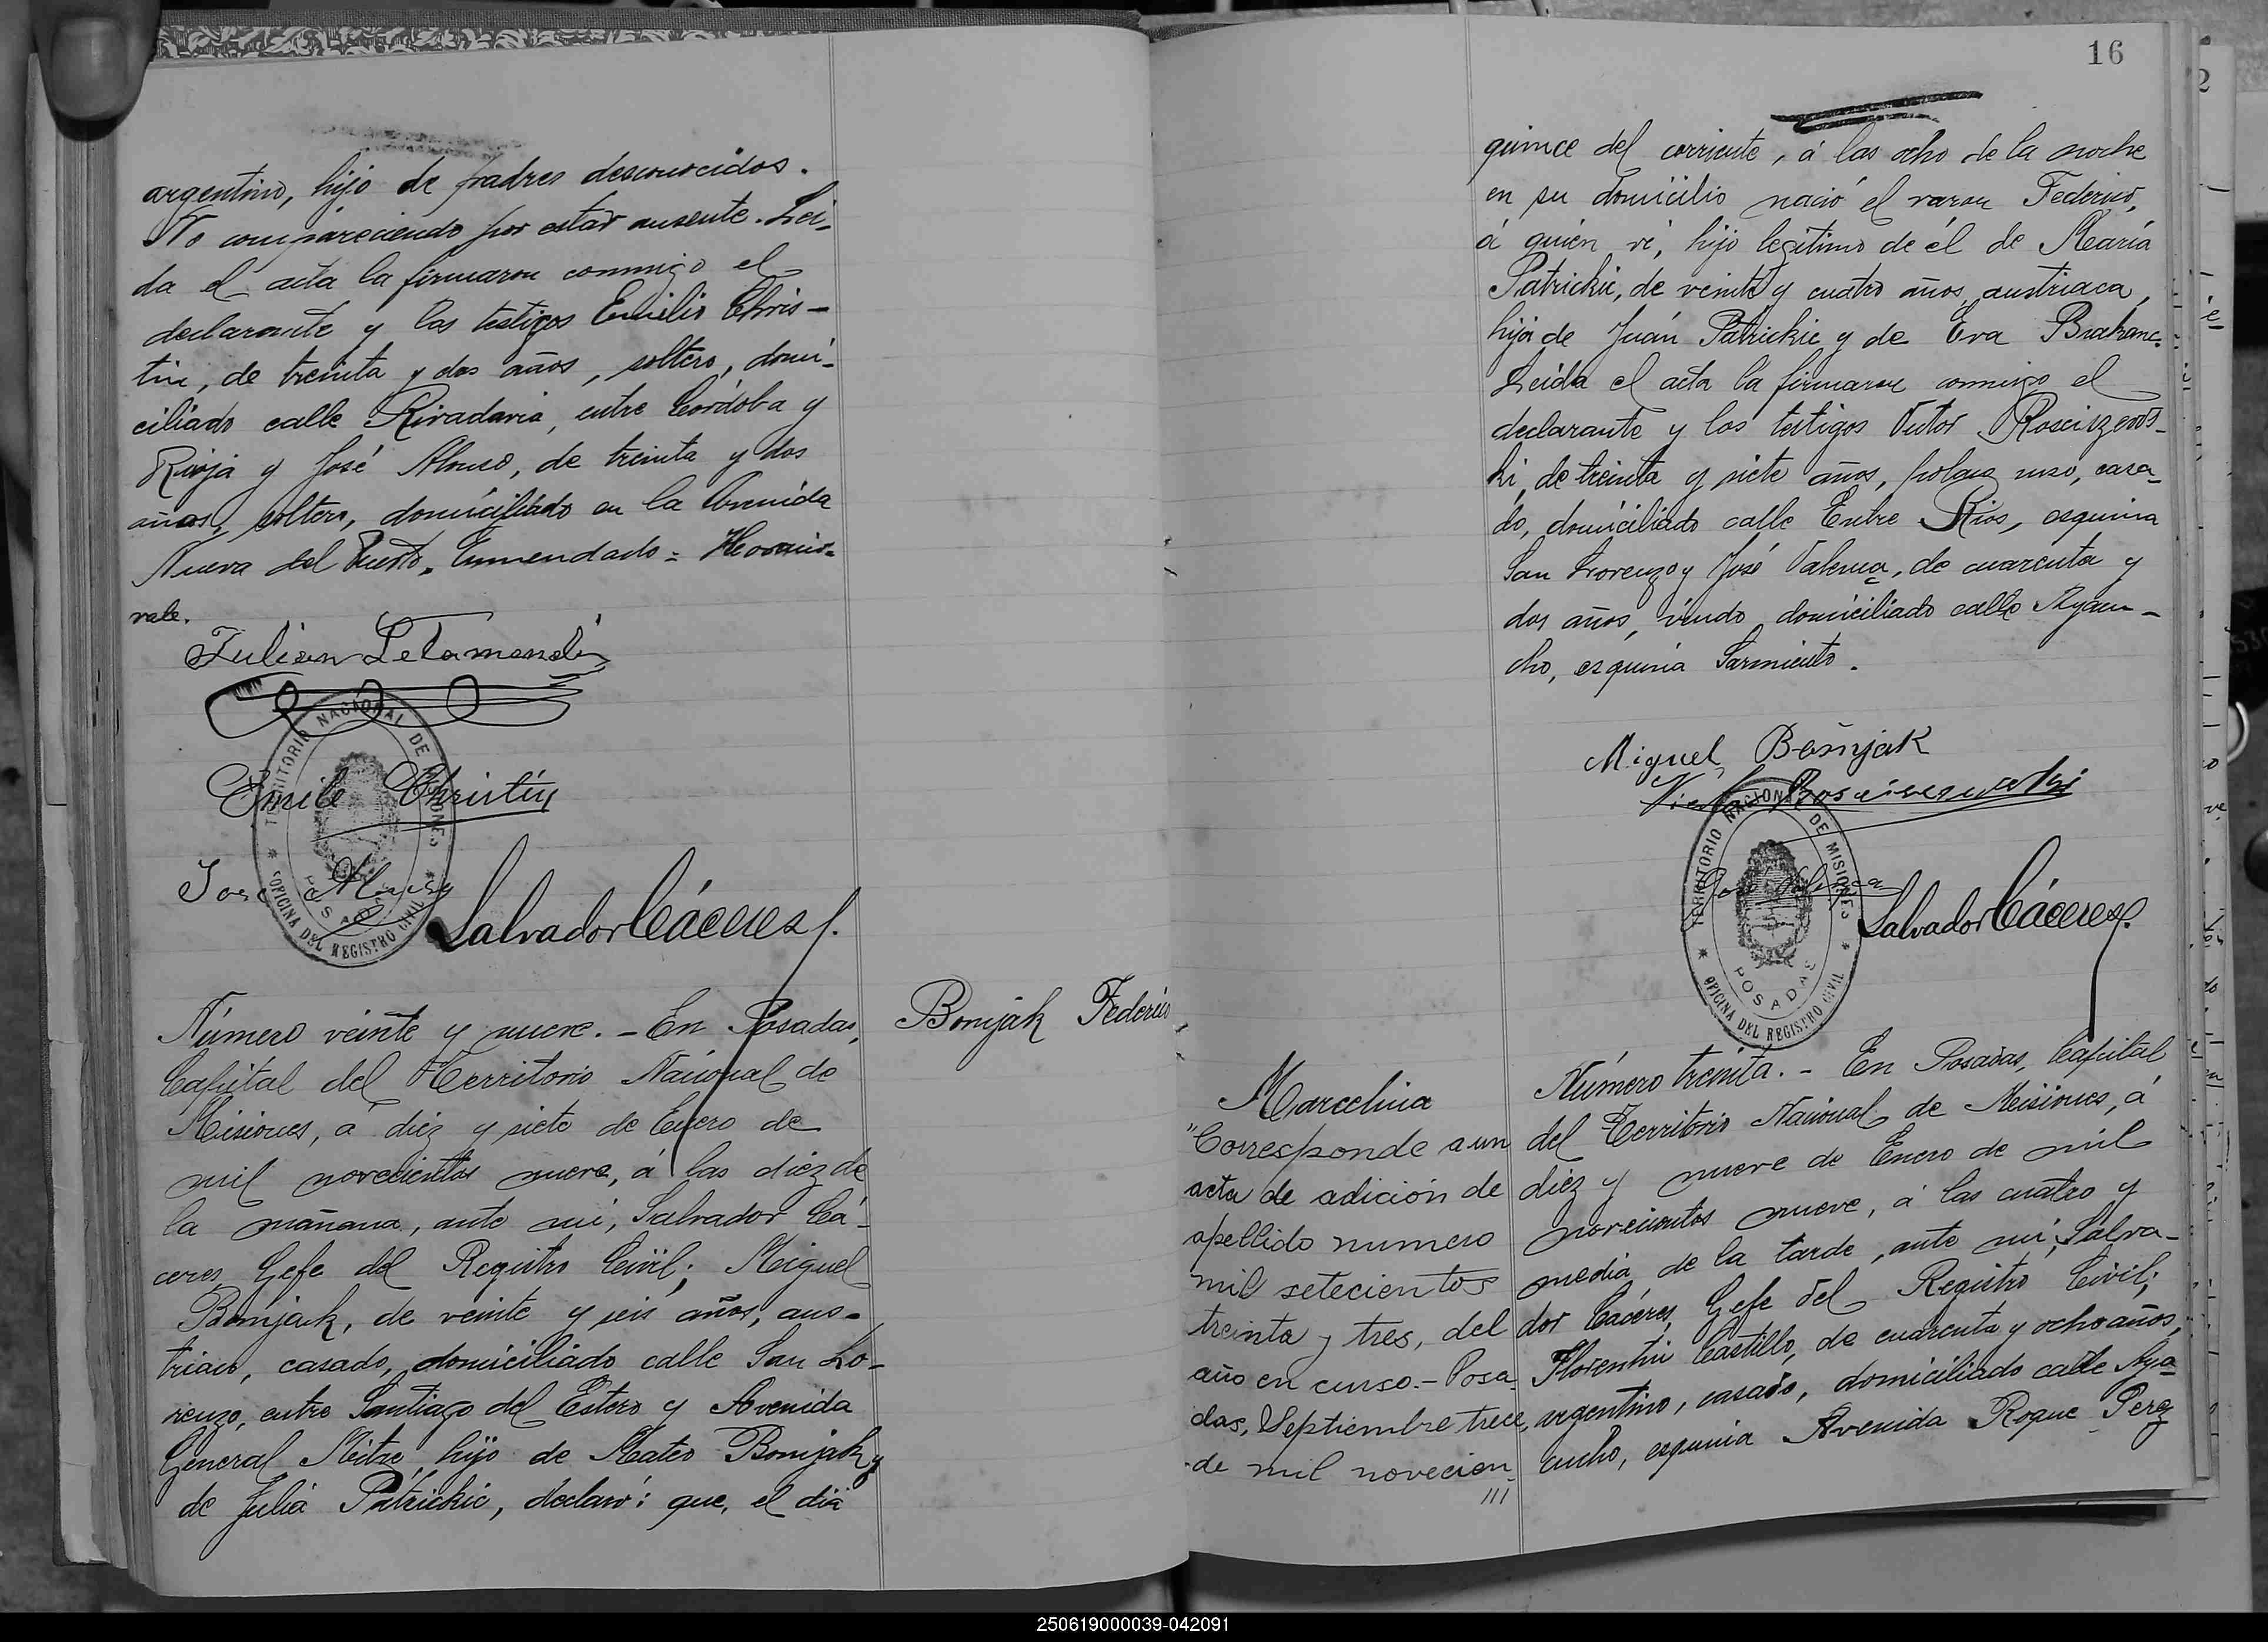 argentino, hijo de padres desconocidos.
No compareciendo por estar ausente. Lei-
da el acta la firmaron conmigo el
declarante y los testigos Emilio Chris-
tin, de treinta y dos años, soltero, domi-
ciliado calle Rivadavia, entre Córdoba y
Rioja y José Alonso, de treinta y dos
años, soltero, domiciliado en la Avenida
Nueva del Puerto. Enmendado =
vale.
Julian Letamendi
Emile Christin
José
Salvador Cáceres
TERRITORIO NACIONAL DE MISIONES
POSADAS
OFICINA DEL REGISTRO CIVIL
Número veinte y nueve. - En Posadas,
Capital del Territorio Nacional de
Misiones, á diez y siete de Enero de
mil novecientos nueve, á las diez de
la mañana, ante mí, Salvador Cá-
ceres, Gefe del Registro Civil; Miguel
Bonijak, de veinte y seis años, aus-
triaco, casado, domiciliado calle San Lo-
renzo, entre Santiago del Estero y Avenida
General Mitre, hijo de Mateo Bonijak y
de Julia Patrickic, declaró: que, el dia
Bonijak Federico
16
quince del corriente, á las ocho de la noche
en su domicilio nació el varon Federico,
á quien ví, hijo legítimo de él de María
Patrickic, de veinte y cuatro años, austriaca,
hija de Juán Patrickic y de Eva
Leida el acta la firmaron conmigo el
declarante y los testigos Victor Roscizews-
ki, de treinta y siete años, polaco ruso, casa-
do, domiciliado calle Entre Rios, esquina
San Lorenzo y José Valença, de cuarenta y
dos años, viudo, domiciliado calle Ayacu-
cho, esquina Sarmiento.
Miguel Bosnjak
Salvador Cáceres
TERRITORIO NACIONAL DE MISIONES
POSADAS
OFICINA DEL REGISTRO CIVIL
Marcelina
"Corresponde a un
acta de adición de
apellido numero
mil setecientos
treinta y tres, del
año en curso.- Posa-
das, Septiembre trece,
de mil novecien-
///
Número treinta. - En Posadas, Capital
del Territorio Nacional de Misiones, á
diez y nueve de Enero de mil
novecientos nueve, á las cuatro y
media de la tarde, ante mí, Salva-
dor Cáceres, Gefe del Registro Civil;
Florentin Castillo, de cuarenta y ocho años,
argentino, casado, domiciliado calle Aya-
cucho, esquina Avenida Roque Perez
250619000039-042091